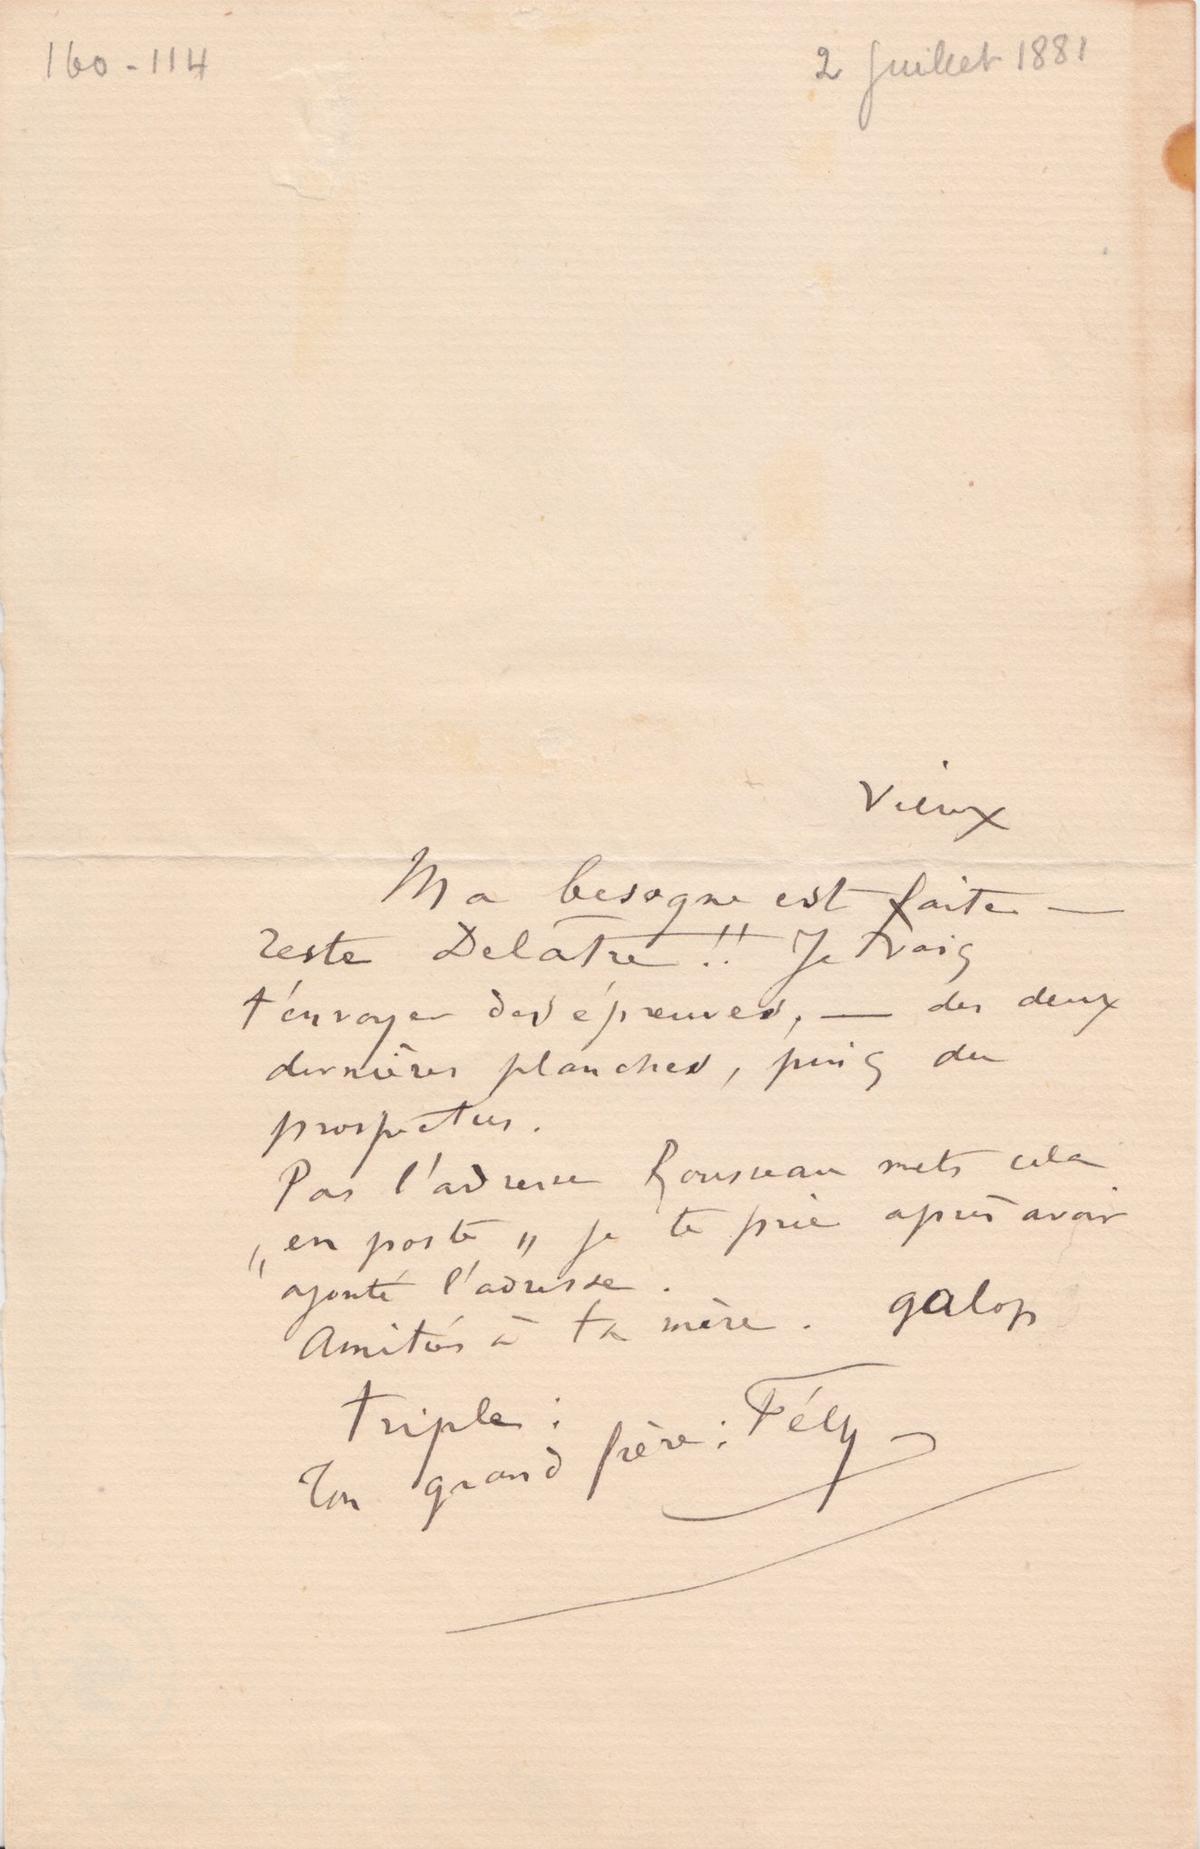 160-114
2 Juillet 1881
Vieux
Ma besogne est faite —
reste Delâtre !! Je vais
t'envoyer des épreuves, — des deux
dernières planches, puis du
prospectus.
Pas l'adresse Rousseau mets cela
„ en poste „ je te prie après avoir
ajouté l'adresse.
Amitiés à ta mère. galop
triple :
Ton grand frère : Fély